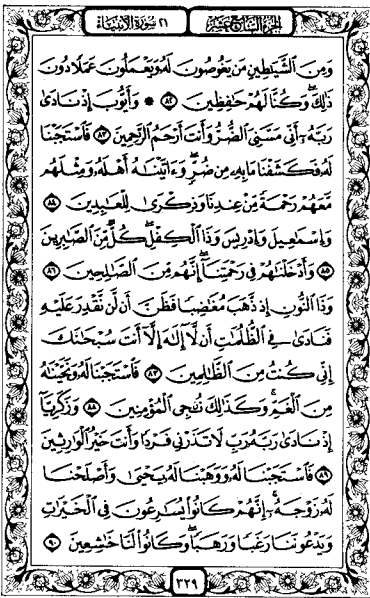 الجزء السابع عشر ٢١ سورة الأنبياء
وَمِنَ ٱلشَّيَـٰطِينِ مَن يَغُوصُونَ لَهُۥ وَيَعْمَلُونَ عَمَلًا دُونَ
ذَٰلِكَ ۖ وَكُنَّا لَهُمْ حَـٰفِظِينَ ٨٢ ۞ وَأَيُّوبَ إِذْ نَادَىٰ
رَبَّهُۥٓ أَنِّى مَسَّنِىَ ٱلضُّرُّ وَأَنتَ أَرْحَمُ ٱلرَّٰحِمِينَ ٨٣ فَٱسْتَجَبْنَا
لَهُۥ فَكَشَفْنَا مَا بِهِۦ مِن ضُرٍّ ۖ وَءَاتَيْنَـٰهُ أَهْلَهُۥ وَمِثْلَهُم
مَّعَهُمْ رَحْمَةً مِّنْ عِندِنَا وَذِكْرَىٰ لِلْعَـٰبِدِينَ ٨٤
وَإِسْمَـٰعِيلَ وَإِدْرِيسَ وَذَا ٱلْكِفْلِ ۖ كُلٌّ مِّنَ ٱلصَّـٰبِرِينَ
٨٥ وَأَدْخَلْنَـٰهُمْ فِى رَحْمَتِنَآ ۖ إِنَّهُم مِّنَ ٱلصَّـٰلِحِينَ ٨٦
وَذَا ٱلنُّونِ إِذ ذَّهَبَ مُغَـٰضِبًا فَظَنَّ أَن لَّن نَّقْدِرَ عَلَيْهِ
فَنَادَىٰ فِى ٱلظُّلُمَـٰتِ أَن لَّآ إِلَـٰهَ إِلَّآ أَنتَ سُبْحَـٰنَكَ
إِنِّى كُنتُ مِنَ ٱلظَّـٰلِمِينَ ٨٧ فَٱسْتَجَبْنَا لَهُۥ وَنَجَّيْنَـٰهُ
مِنَ ٱلْغَمِّ ۚ وَكَذَٰلِكَ نُـۨجِى ٱلْمُؤْمِنِينَ ٨٨ وَزَكَرِيَّآ
إِذْ نَادَىٰ رَبَّهُۥ رَبِّ لَا تَذَرْنِى فَرْدًا وَأَنتَ خَيْرُ ٱلْوَٰرِثِينَ
٨٩ فَٱسْتَجَبْنَا لَهُۥ وَوَهَبْنَا لَهُۥ يَحْيَىٰ وَأَصْلَحْنَا
لَهُۥ زَوْجَهُۥٓ ۚ إِنَّهُمْ كَانُوا۟ يُسَـٰرِعُونَ فِى ٱلْخَيْرَٰتِ
وَيَدْعُونَنَا رَغَبًا وَرَهَبًا ۖ وَكَانُوا۟ لَنَا خَـٰشِعِينَ ٩٠
٣٢٩